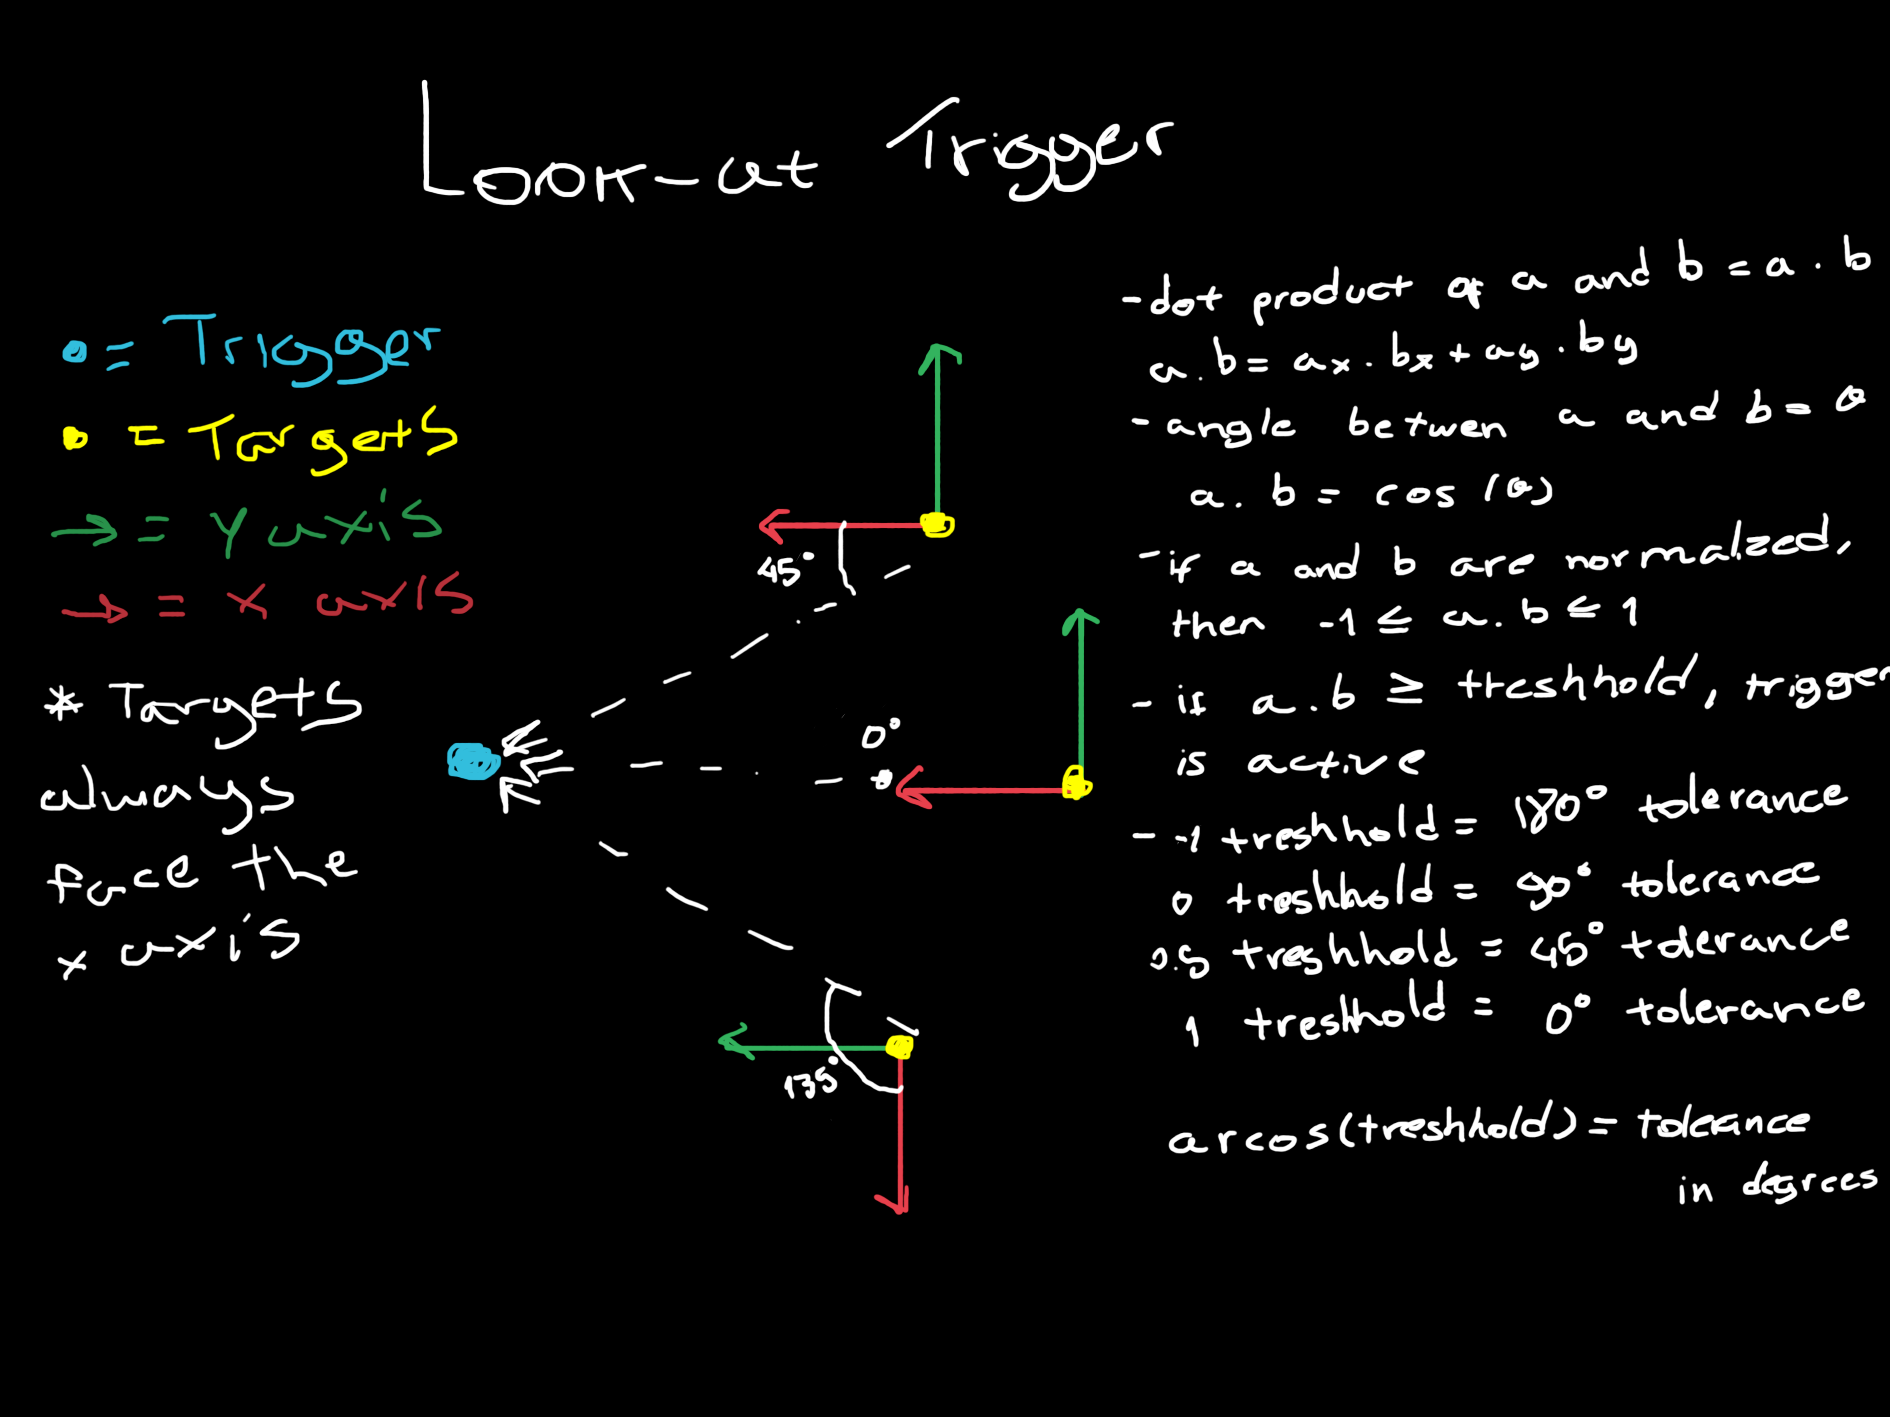 Look-at Trigger
= Trigger
= Targets
= y axis
= x axis
* Targets
always
face the
x axis
45°
0°
135°
-dot product of a and b = a . b
a . b = ax . bx + ay . by
- angle betwen a and b = θ
a . b = cos (θ)
- if a and b are normalzed,
then -1 ≤ a . b ≤ 1
- if a . b ≥ treshhold, trigger
is active
- -1 treshhold = 180° tolerance
0 treshhold = 90° tolerance
0.5 treshhold = 45° tolerance
1 treshhold = 0° tolerance
arcos(treshhold) = tolerance
in degrees